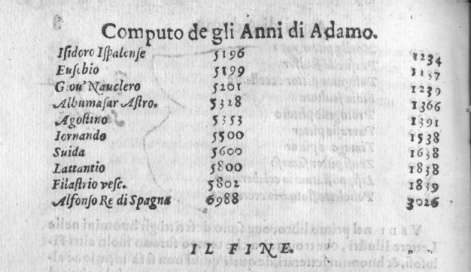 Computo de gli Anni di Adamo.
Isidoro Ispalense 5196 1234
Eusebio 5199
Giou' Nauclero 5201 1239
Albumasar Astro. 5328 1366
Agostino 5353 1391
Iornando 5500 1538
Suida 5600 1638
Lattantio 5800 1838
Filastrio vesc. 5802 1839
Alfonso Re di Spagna 6988 3026
IL FINE.